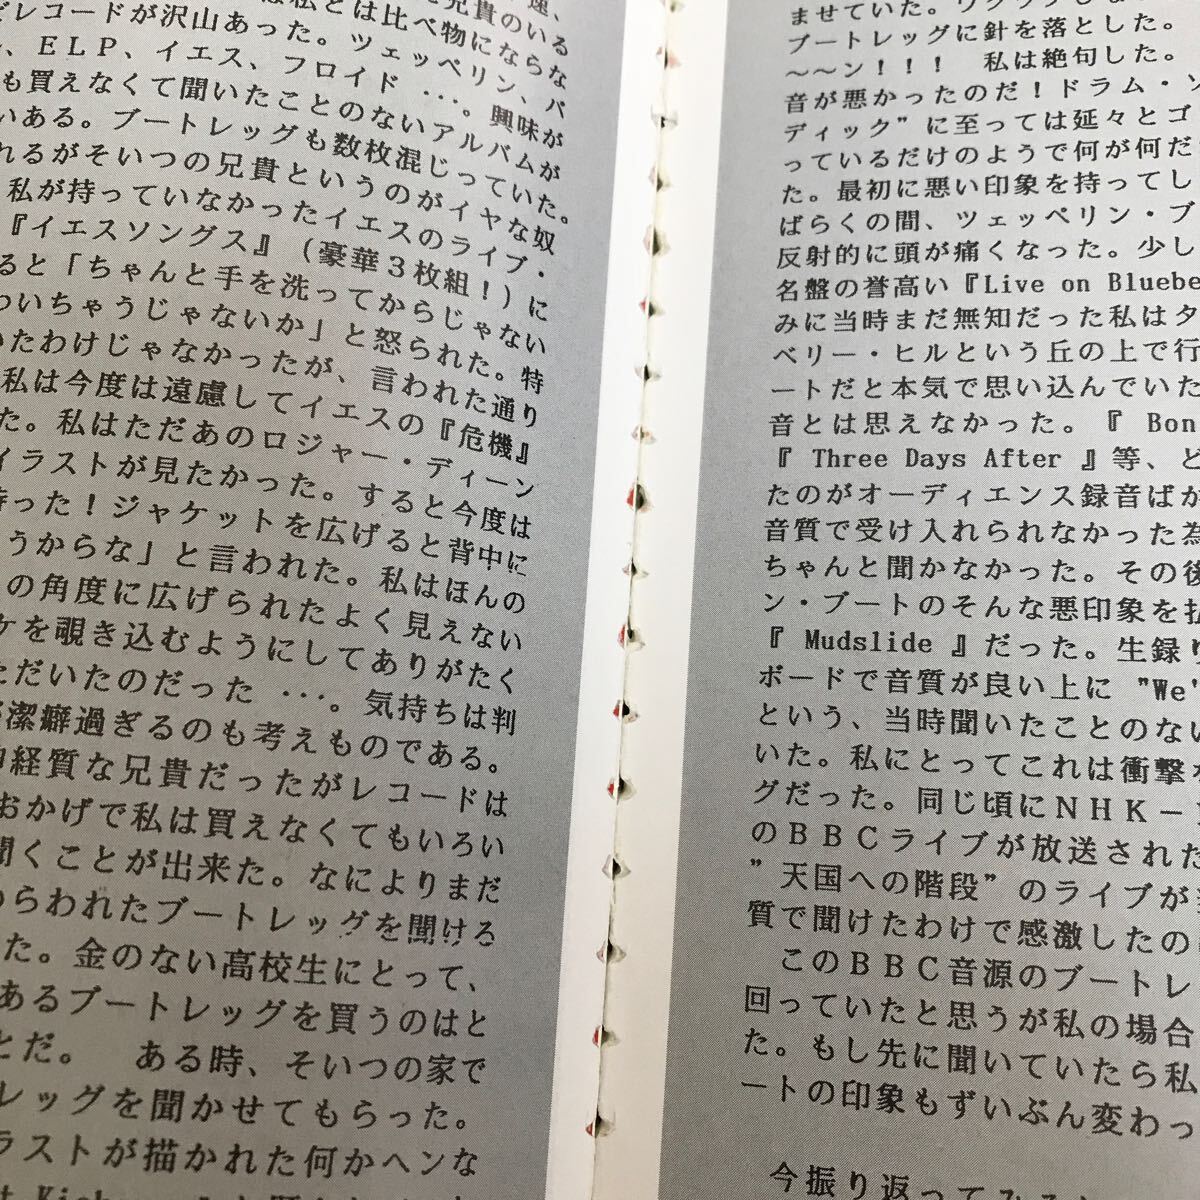 兄貴のいる
レコードが沢山あった。ツェッペリン、パ
は私とは比べ物にならな
、ＥＬＰ、イエス、フロイド …。興味が
も買えなくて聞いたことのないアルバムが
いある。ブートレッグも数枚混じっていた。
れるがそいつの兄貴というのがイヤな奴
私が持っていなかったイエスのライブ・
『イエスソングス』（豪華３枚組！）に
ると「ちゃんと手を洗ってからじゃない
わいちゃうじゃないか」と怒られた。特
いたわけじゃなかったが、言われた通り
私は今度は遠慮してイエスの『危機』
た。私はただあのロジャー・ディーン
イラストが見たかった。すると今度は
待った！ジャケットを広げると背中に
うからな」と言われた。私はほんの
の角度に広げられたよく見えない
ケを覗き込むようにしてありがたく
ただいたのだった …。気持ちは判
潔癖過ぎるのも考えものである。
経質な兄貴だったがレコードは
おかげで私は買えなくてもいろい
聞くことが出来た。なによりまだ
らわれたブートレッグを聞ける
た。金のない高校生にとって、
あるブートレッグを買うのはと
とだ。　ある時、そいつの家で
レッグを聞かせてもらった。
ラストが描かれた何かヘンな
ませていた。ワクワクしな
ブートレッグに針を落とした。
～～ン！！！　私は絶句した。
音が悪かったのだ！ドラム・ソ
ディック”に至っては延々とゴ
っているだけのようで何が何だ
た。最初に悪い印象を持ってし
ばらくの間、ツェッペリン・ブ
反射的に頭が痛くなった。少し
名盤の誉高い『Live on Bluebe
みに当時まだ無知だった私はタ
ベリー・ヒルという丘の上で行
ートだと本気で思い込んでいた
音とは思えなかった。『 Bon
『 Three Days After 』等、ど
たのがオーディエンス録音ばか
音質で受け入れられなかった為
ちゃんと聞かなかった。その後
ン・ブートのそんな悪印象を払
『 Mudslide 』だった。生録り
ボードで音質が良い上に "We'
という、当時聞いたことのない
いた。私にとってこれは衝撃な
グだった。同じ頃にＮＨＫ－
のＢＢＣライブが放送された
”天国への階段”のライブが
質で聞けたわけで感激したの
このＢＢＣ音源のブートレ
回っていたと思うが私の場合
た。もし先に聞いていたら私
ートの印象もずいぶん変わっ
今振り返ってみると